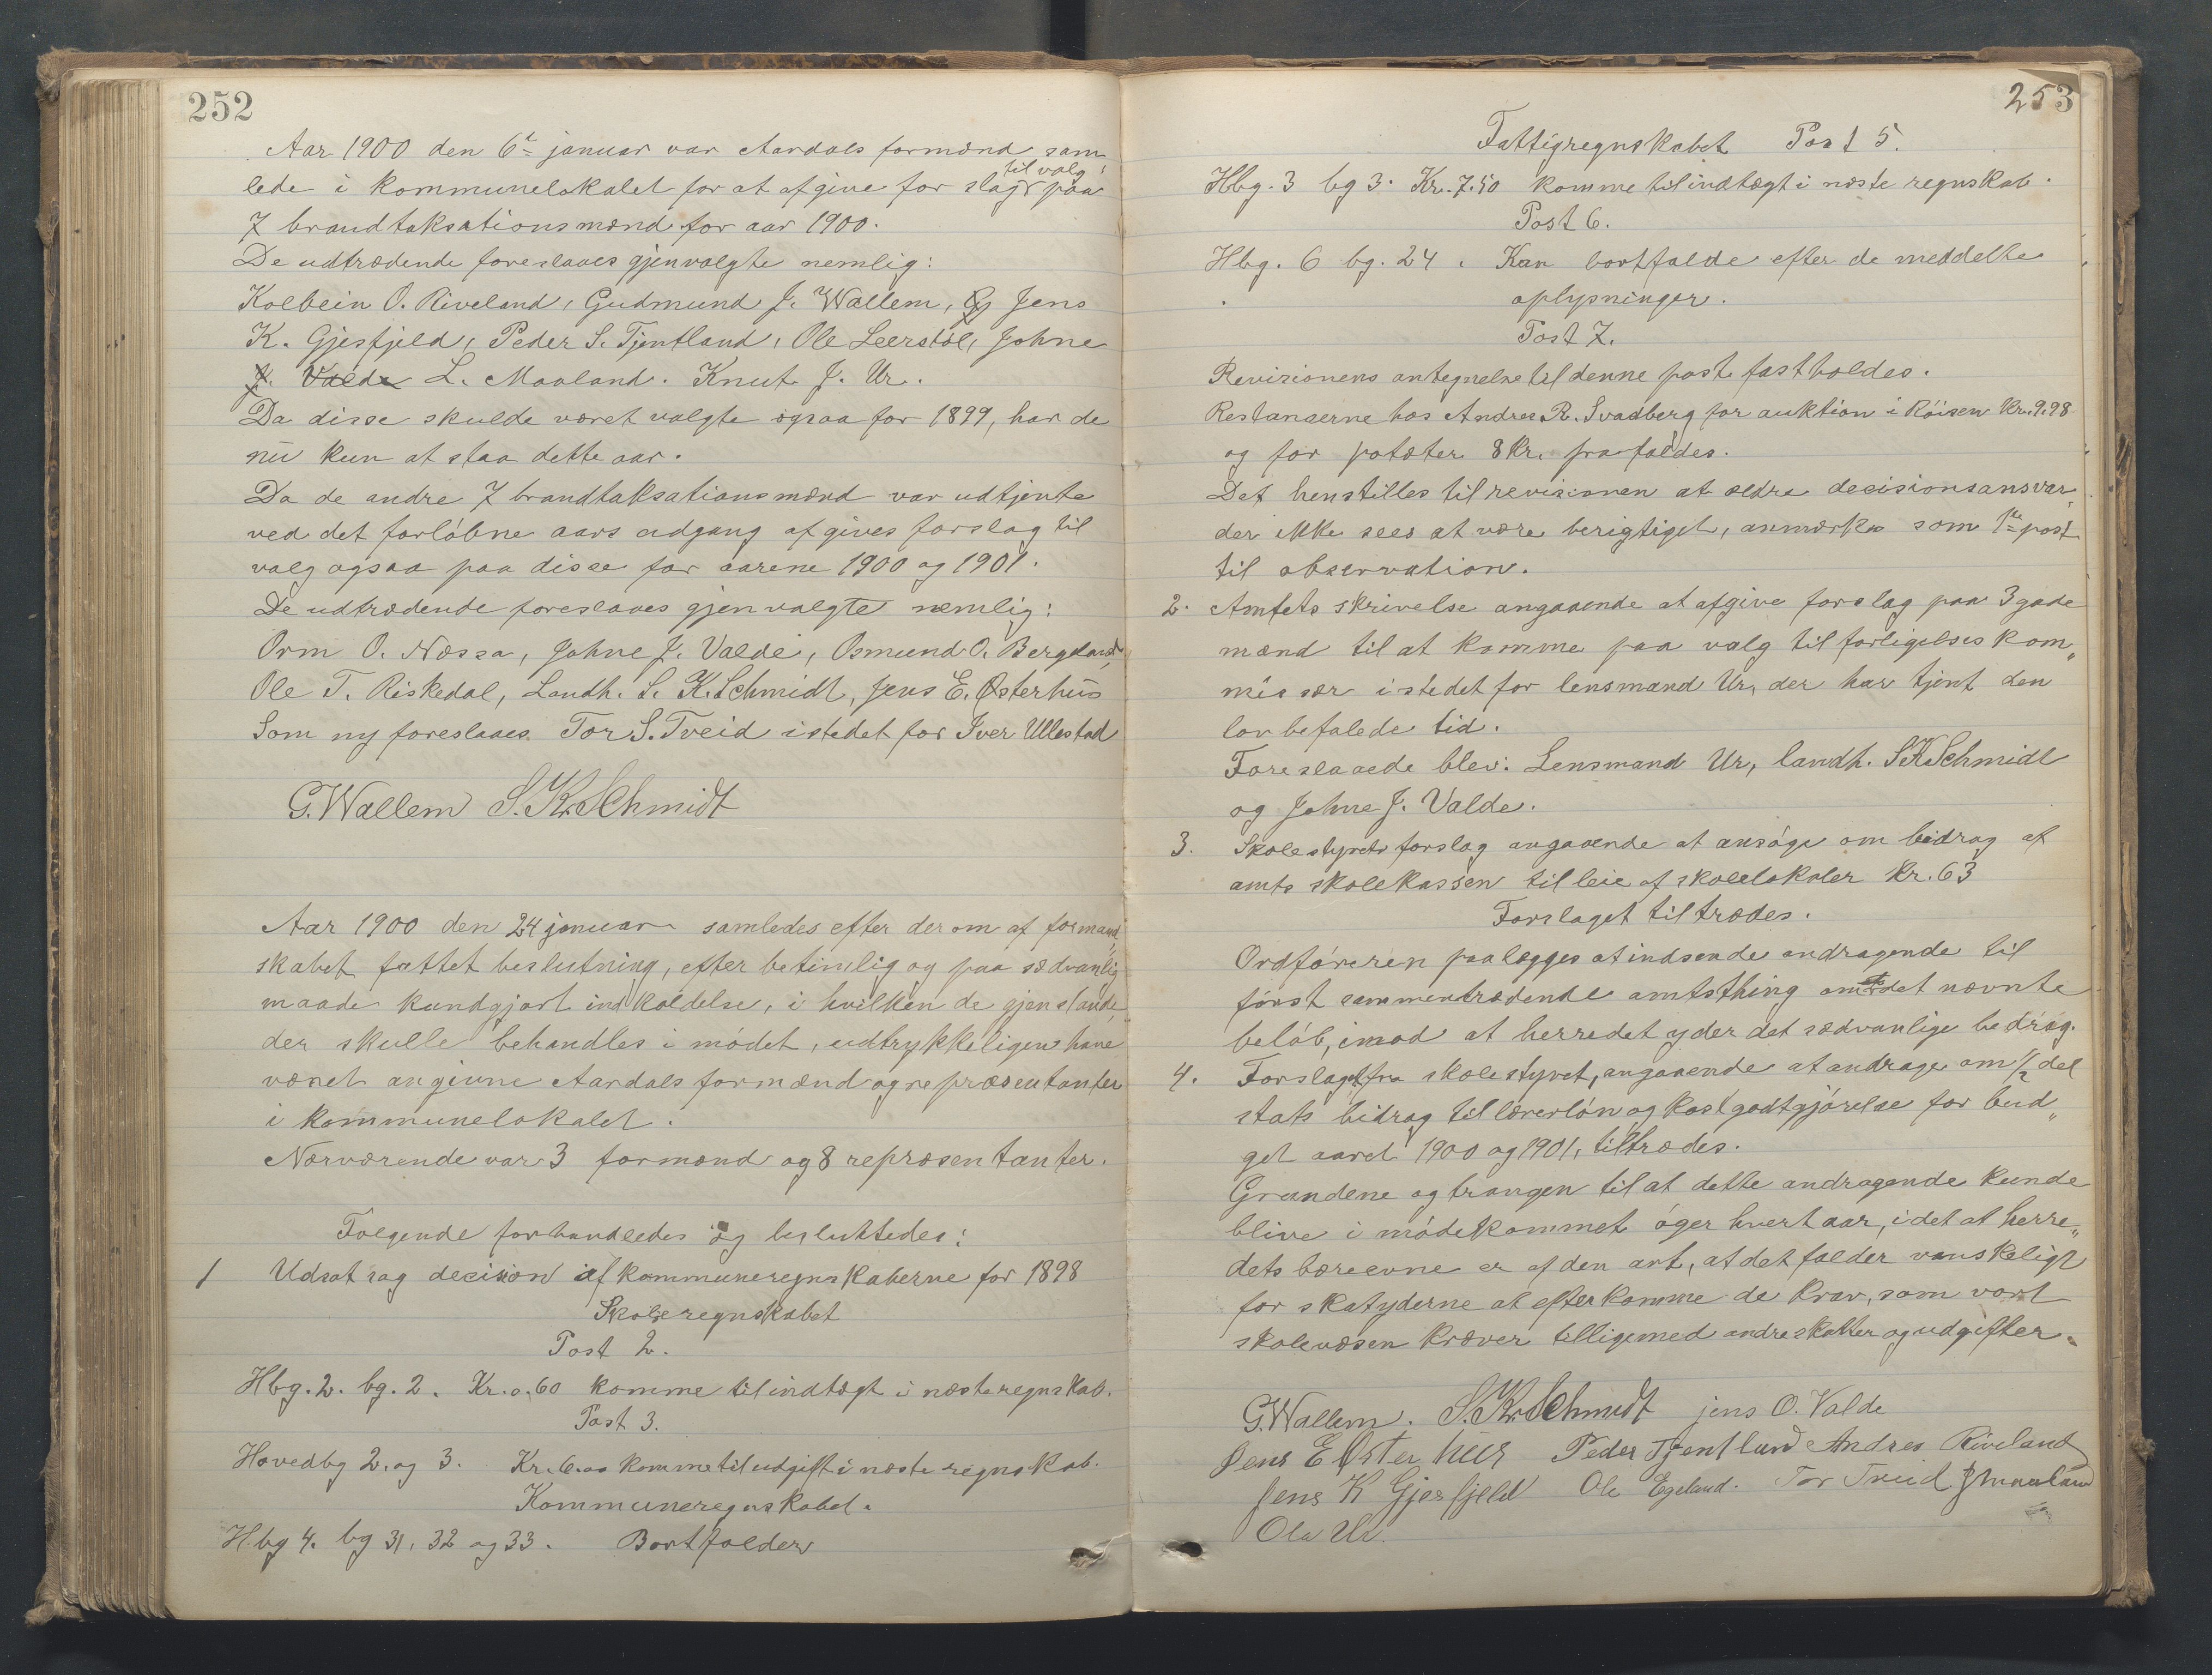 252
Aar 1900 den 6te januar var Aardals formænd sam„
lede i kommunelokalet for at afgive for slag til valg paa
7 brandtaksationsmænd for aar 1900.
De udtrædende foreslaaes gjenvalgte nemlig:
Kolbein O. Riveland, Gudmund J. Wallem, Og Jens
K. Gjesfjeld, Peder S. Tjentland, Ole Leerstøl, Johne
J. Valde L. Maaland. Knut J. Ur.
Da disse skulde været valgte ogsaa for 1899, har de
nu kun at staa dette aar.
Da de andre 7 brandtaksationsmænd var udtjente
ved det forløbne aars udgang afgives forslag til
valg ogsaa paa disse for aarene 1900 og 1901.
De udtrædende foreslaaes gjenvalgte nemlig:
Orm O. Næssa, Johne J. Valde, Osmund O. Bergeland,
Ole T. Riskedal, Landh. S. K. Schmidt, Jens E. Østerhus
Som ny foreslaaes Tor S. Tveid istedet for Iver Ullestad
G. Wallem S. Kr. Schmidt
Aar 1900 den 24 januar samledes efter derom af formand„
skabet fattet beslutning, efter betimelig og paa sædvanlig
maade kundgjort indkaldelse, i hvilken de gjenstande,
der skulle behandles i mødet, udtrykkeligen have
været angivne Aardals formænd og repræsentanter
i kommunelokalet.
Nærværende var 3 formænd og 8 repræsentanter.
Følgende forhandledes og besluttedes:
1 Udsat sag decision af kommuneregnskaberne for 1898
Skoleregnskabet
Post 2.
Hbg. 2. bg. 2. Kr. 0.60 komme til indtægt i næste regnskab.
Post 3.
Hovedbg 2. og 3. Kr. 6.00 komme til udgift i næste regnskab.
Kommuneregnskabet.
Hbg 4. bg 31, 32 og 33. Bortfalder
253
Fattigregnskabet Post 5.
Hbg. 3 bg 3. Kr. 7.50 komme til indtægt i næste regnskab.
Post 6.
Hbg. 6 bg. 24. Kan bortfalde efter de meddelte
oplysninger.
Post 7.
Revisionens antegnelse til denne post fastholdes.
Restancerne hos Andres R. Svadberg for auktion i Røisen Kr. 9.98
og for potæter 8 Kr. frafaldes.
Det henstilles til revisionen at ældre decisionsansvar,
der ikke sees at være berigtiget, anmærkes som 1ste post
til observation.
2. Amtets skrivelse angaaende at afgive forslag paa 3 gode
mænd til at komme paa valg til forligelses kom„
missær istedet for lensmand Ur, der har tjent den
lovbefalede tid.
Foreslaaede blev: Lensmand Ur, landh. S K Schmidt
og Johne J. Valde.
3. Skolestyrets forslag angaaende at ansøge om bidrag af
amts skolekassen til leie af skolelokaler Kr. 63
Forslaget tiltrædes.
Ordføreren paalægges at indsende andragende til
først sammentrædende amtsthing om det nævnte
beløb, imod at herredet yder det sædvanlige bedrag.
4. Forslaget fra skolestyret, angaaende at andrage om 1/2 del
stats bidrag til lærerløn og kostgodtgjørelse for bud„
get aaret 1900 og 1901, tiltrædes.
Grundene og trangen til at dette andragende kunde
blive i mødekommet øger hvert aar, i det at herre„
dets bæreevne er af den art, at det falder vanskeligt
for skatyderne at efterkomme de krav, som vort
skolevæsen kræver tilligemed andre skatter og udgifter.
G. Wallem. S. Kr. Schmidt jens O. Valde
Jens E Østerhus Peder Tjentland Andres Riveland
Jens K Gjesfjeld Ole Egeland. Tor Tveid J Maaland
Ola Ur.